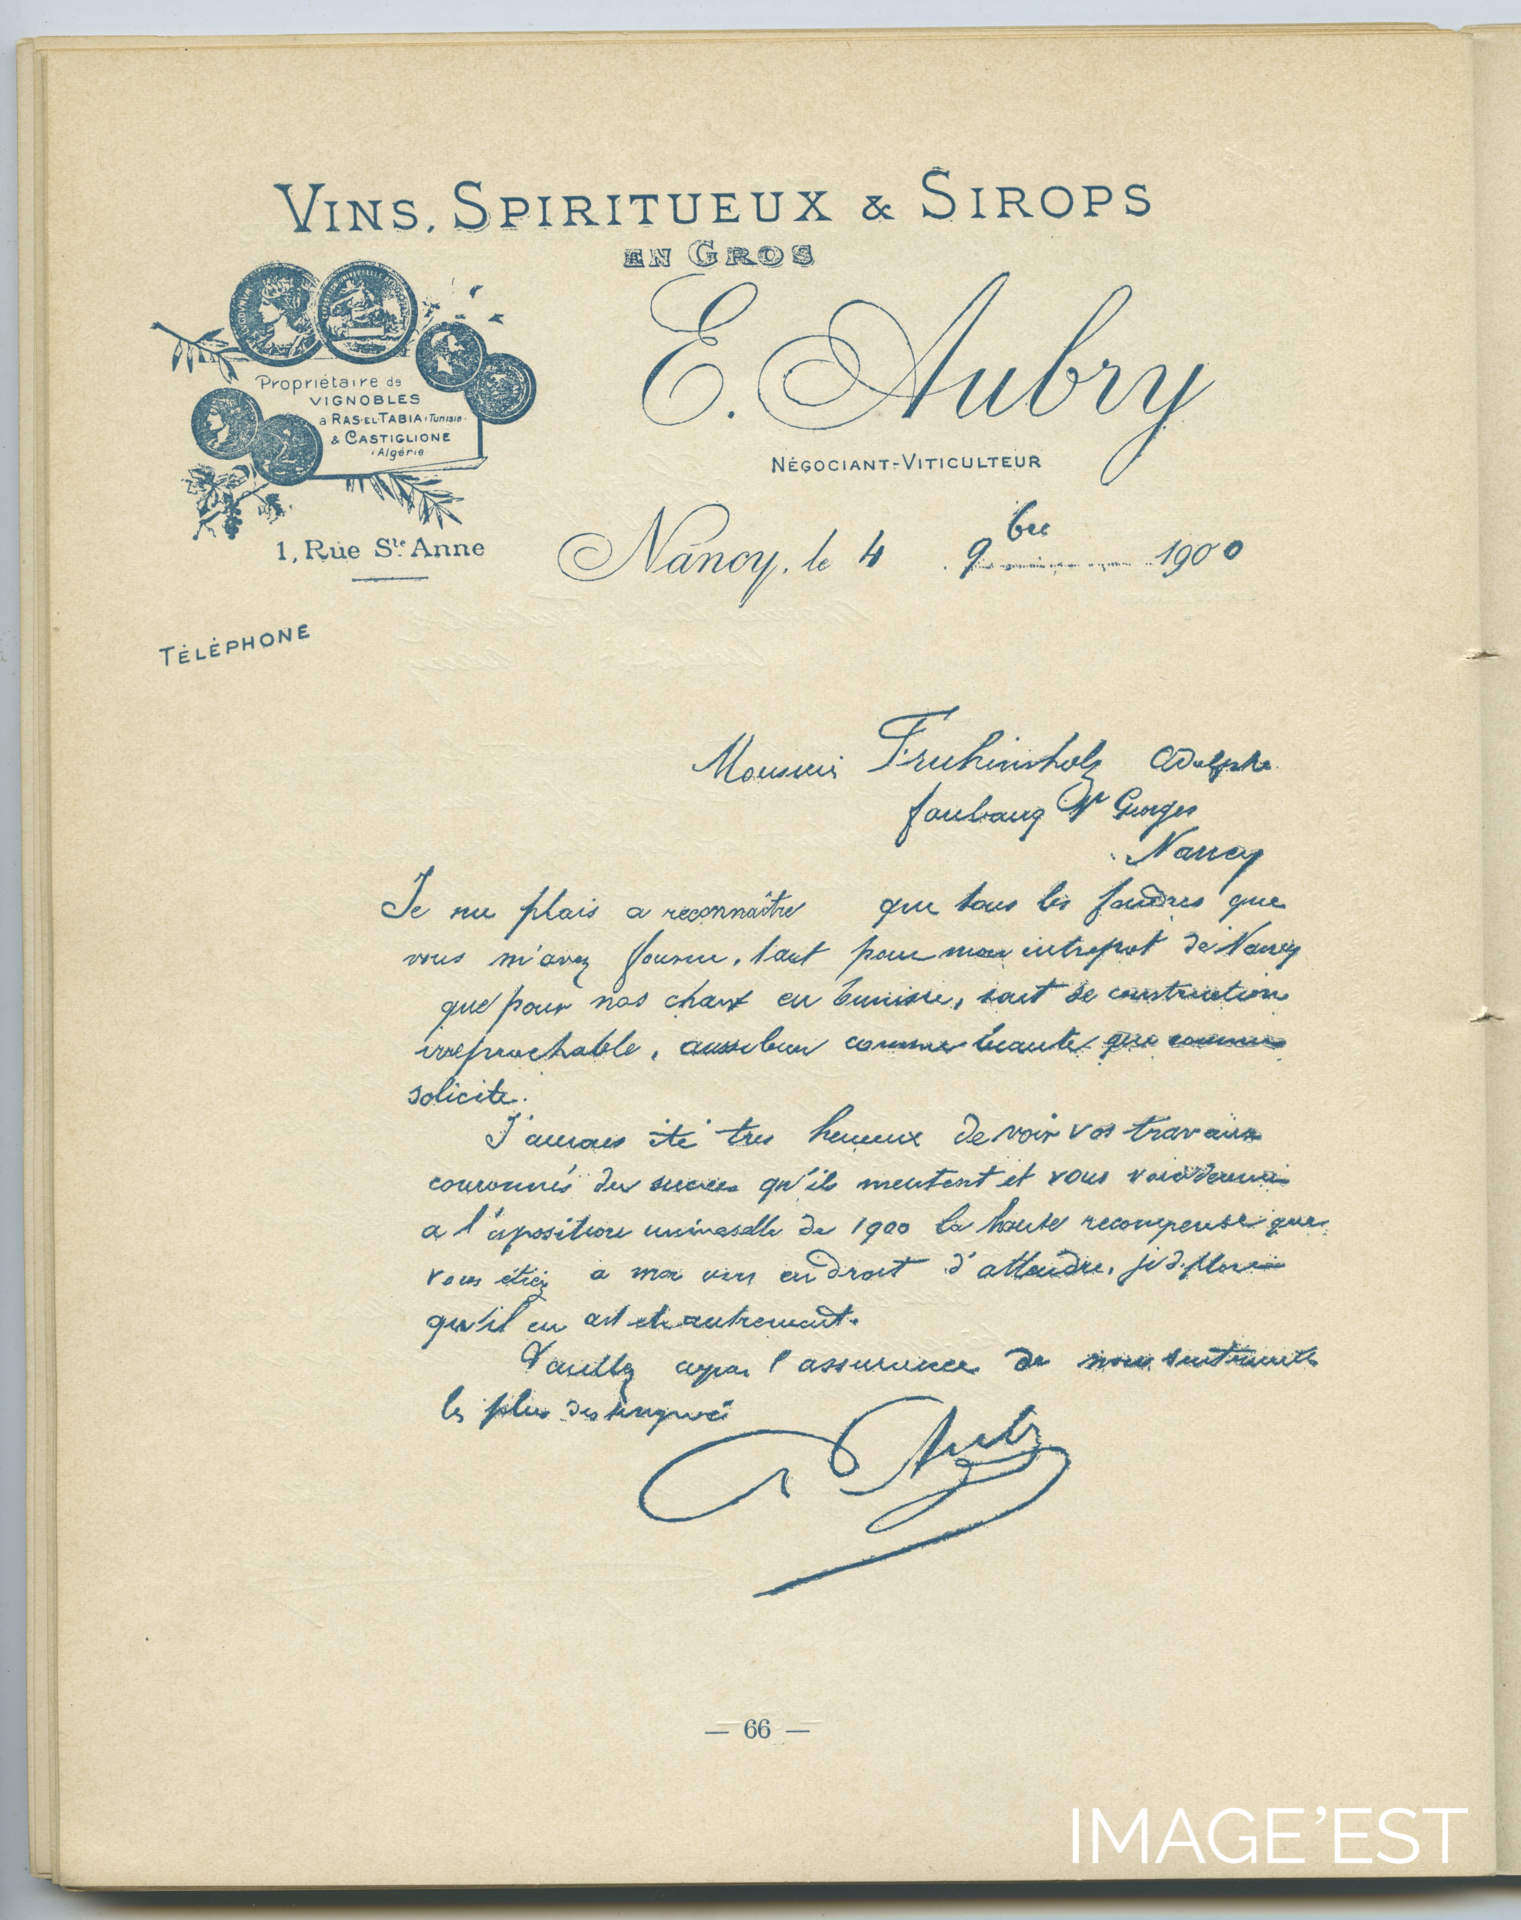 VINS, SPIRITUEUX & SIROPS
EN GROS
E. Aubry
NÉGOCIANT-VITICULTEUR
LUGDUNUM
Propriétaire de
VIGNOBLES
à RAS-EL-TABIA (Tunisie)
& CASTIGLIONE
(Algérie)
1, Rue Ste Anne
TÉLÉPHONE
Nancy, le 4 9bre 1900
Monsieur Fruhinsholz Adolphe
faubourg St Georges
Nancy
Je me plais a reconnaître que tous les foudres que
vous m'avez fourni, tant pour mon entrepot de Nancy
que pour nos chais en Tunisie, sont de construction
irreprochable, aussi bien comme beaute que comme
solicite.
J'aurais été tres heureux de voir vos travaux
couronnés du succes qu'ils meritent et vous voir decerner
a l'exposition universelle de 1900 la haute recompense que
vous étiez a mon avis en droit d'attendre, je deplore
qu'il en ait ete autrement.
Veuillez agreer l'assurance de mes sentiments
les plus distingués
Aubry
— 66 —
IMAGE'EST